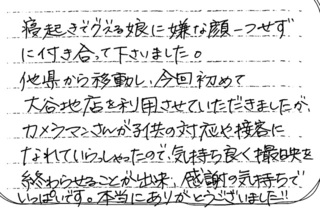 寝起きでグズる娘に嫌な顔一つせず
に付き合って下さいました。
他県から移動し、今回初めて
大谷地店を利用させていただきましたが、
カメラマンさんが子供の対応や接客に
なれていらっしゃったので、気持ち良く撮影を
終わらせることが出来、感謝の気持ちで
いっぱいです。本当にありがとうございました!!